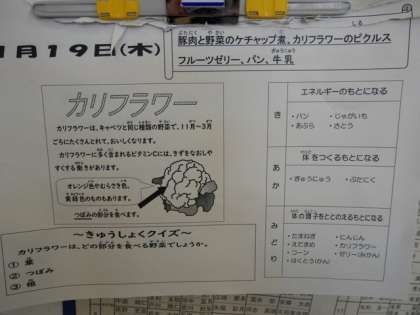 1月19日(木)
豚肉と野菜のケチャップ煮、カリフラワーのピクルス
フルーツゼリー、パン、牛乳
カリフラワー
カリフラワーは、キャベツと同じ種類の野菜で、11月～3月
ごろにたくさんとれて、おいしくなります。
カリフラワーに多く含まれるビタミンCには、きずをなおしや
すくする働きがあります。
オレンジ色やむらさき色、
黄緑色のものもあります。
つぼみの部分を食べます。
～きゅうしょくクイズ～
カリフラワーは、どの部分を食べる野菜でしょうか。
① 葉
② つぼみ
③ 根
エネルギーのもとになる
き
・パン ・じゃがいも
・あぶら ・さとう
体をつくるもとになる
あか
・ぎゅうにゅう ・ぶたにく
体の調子をととのえるもとになる
みどり
・たまねぎ ・にんじん
・えだまめ ・カリフラワー
・コーン ・ゼリー(みかん)
・はくとう(かん)